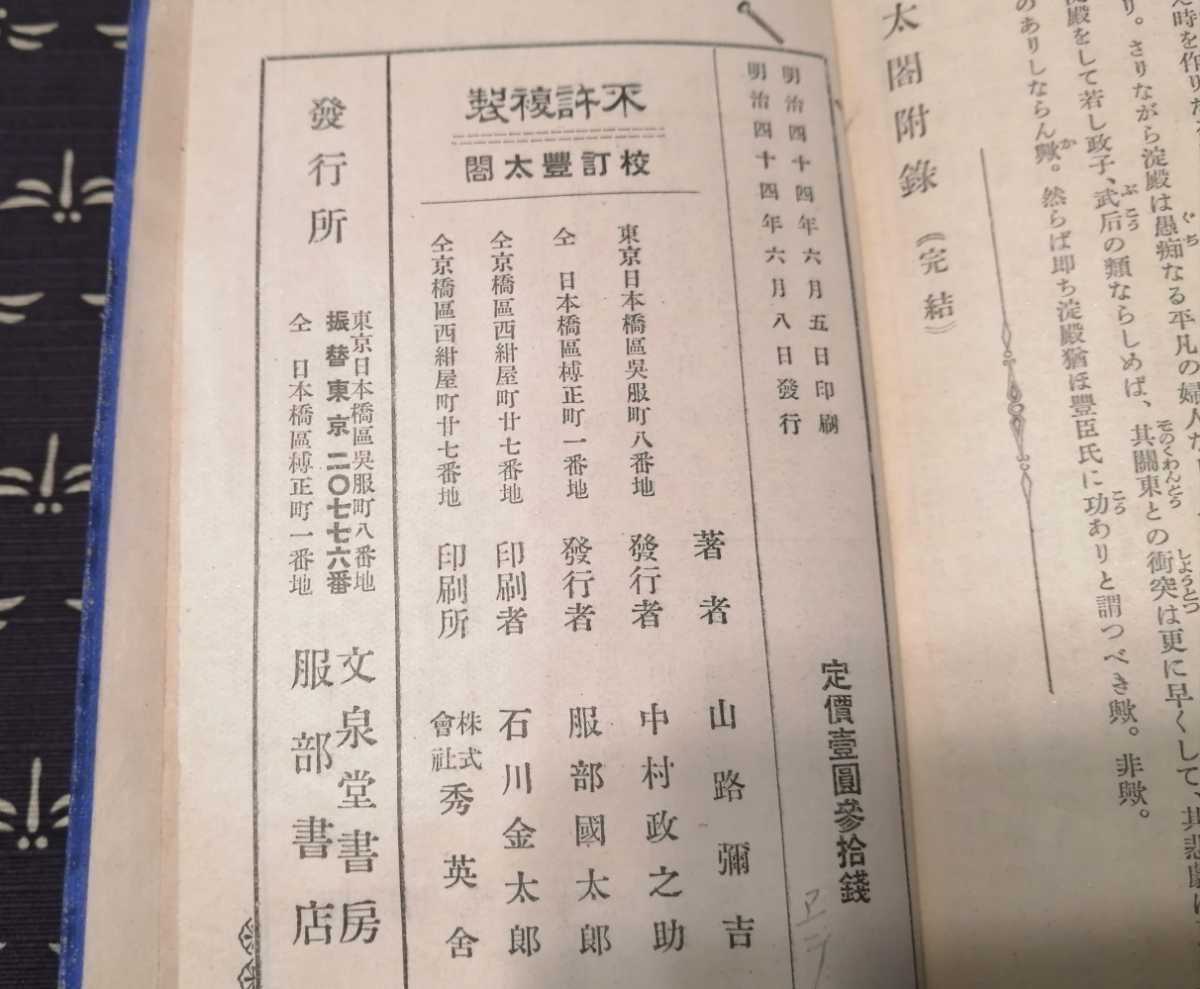 時を作り
り。さりながら淀殿は愚痴なる平凡の婦人
殿をして若し政子、武后の類ならしめば、其關東との衝突は更に早くして、其悲劇
のありしならん歟。然らば即ち淀殿猶ほ豐臣氏に功ありと謂つべき歟。非歟。
太閤附錄《完結》
明治四十四年六月五日印刷
明治四十四年六月八日發行
定價壹圓參拾錢
不許複製
校訂豐太閤
著者 山路彌吉
東京日本橋區吳服町八番地 發行者 中村政之助
仝 日本橋區榑正町一番地 發行者 服部國太郎
仝京橋區西紺屋町廿七番地 印刷者 石川金太郎
仝京橋區西紺屋町廿七番地 印刷所 株式會社 秀英舍
發行所
東京日本橋區吳服町八番地 文泉堂書房
振替東京二〇七七六番
仝 日本橋區榑正町一番地 服部書店